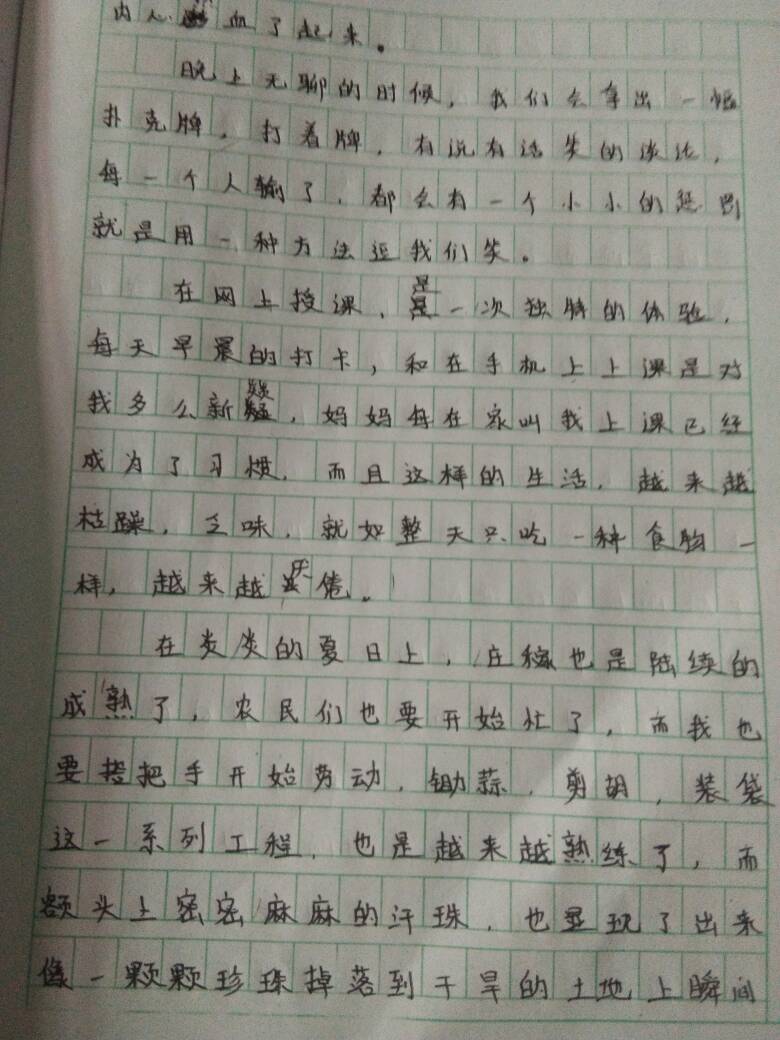 内心血了起来。
晚上无聊的时候，我们会拿出一幅
扑克牌，打着牌，有说有话笑的谈论，
每一个人输了，都会有一个小小的惩罚
就是用一种方法逗我们笑。
在网上授课，是一次独特的体验，
每天早晨的打卡，和在手机上上课是对
我多么新疑，妈妈每在家叫我上课已经
成为了习惯，而且这样的生活，越来越
枯躁，乏味，就如整天只吃一种食物一
样，越来越厌倦。
在炎炎的夏日上，庄稼也是陆续的
成熟了，农民们也要开始忙了，而我也
要搭把手开始劳动，锄蒜，剪胡，装袋
这一系列工程，也是越来越熟练了，而
额头上密密麻麻的汗珠，也显现了出来
像一颗颗珍珠掉落到干旱的土地上瞬间